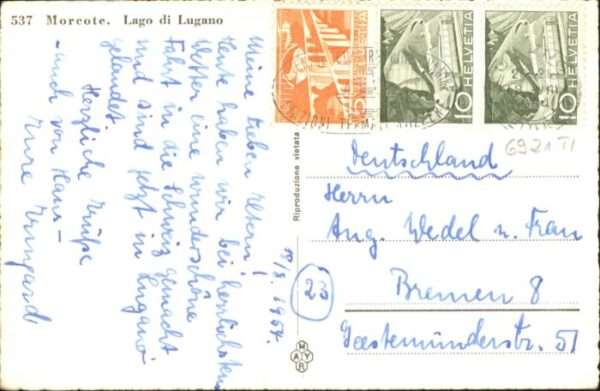 537 Morcote. Lago di Lugano
Meine lieben Eltern!
Heute haben wir bei herrlichstem
Wetter eine wunderschöne
Fahrt in die Schweiz gemacht
und sind jetzt in Lugano
gelandet.
Herzliche Grüße
auch von Hans –
Eure Irmgard
18/8. 1954
Riproduzione vietata
MAYR
5
HELVETIA
10
HELVETIA
10
HELVETIA
6921 TI
Deutschland
Herrn
Aug. Wedel u. Frau
23
Bremen 8
Geestemünderstr. 51